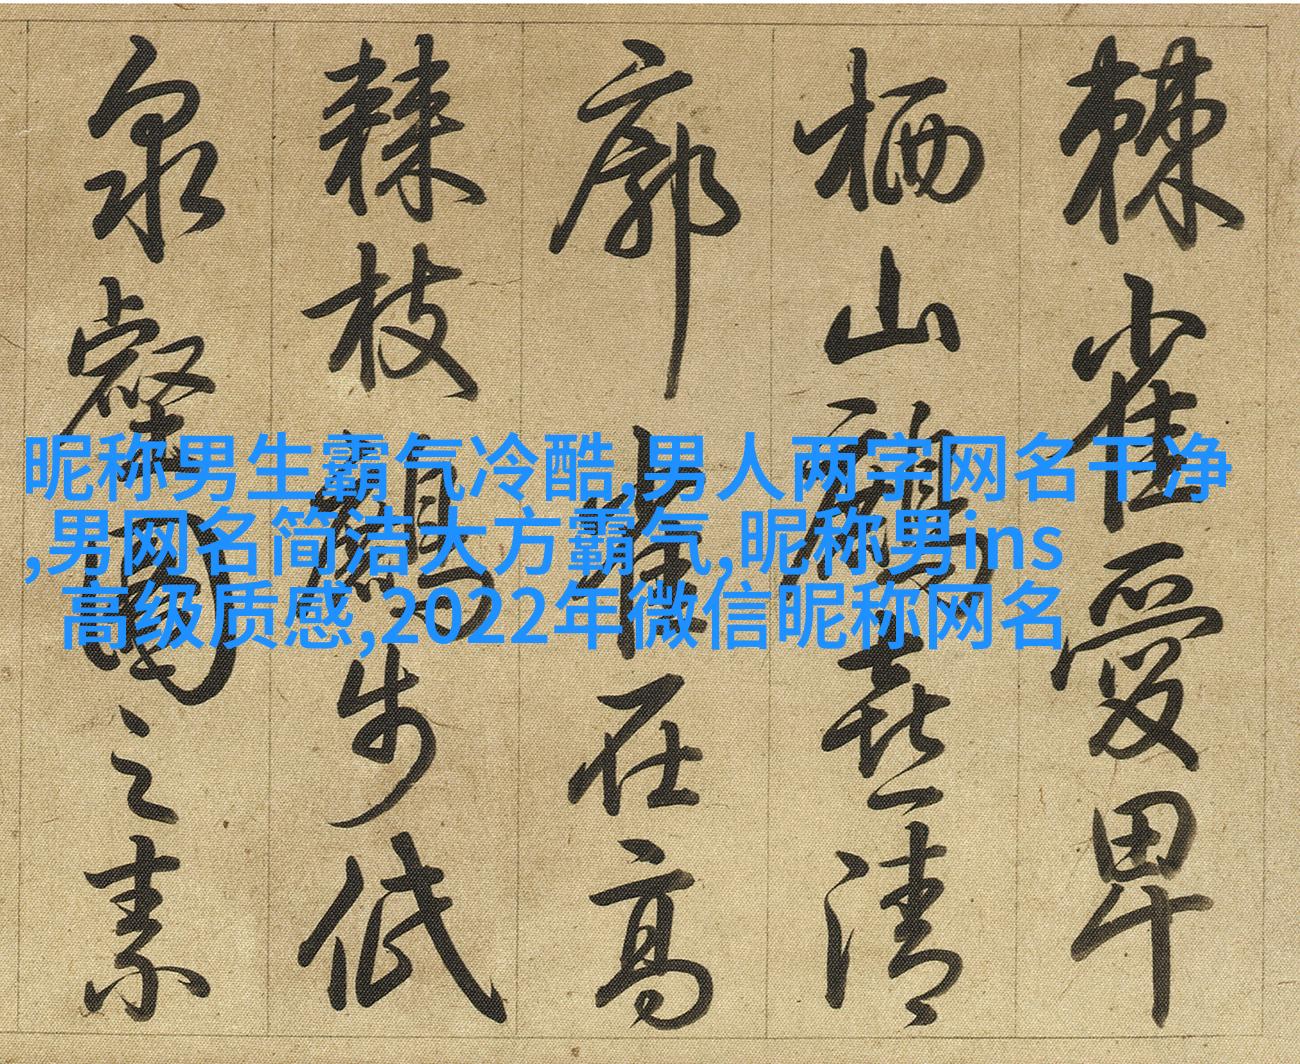 棘雀愛卑
栖山喜清
廓在高
棘枝步低
泉壑園之素
昵称男生霸气冷酷,男人两字网名干净
,男网名简洁大方霸气,昵称男ins
高级质感,2022年微信昵称网名